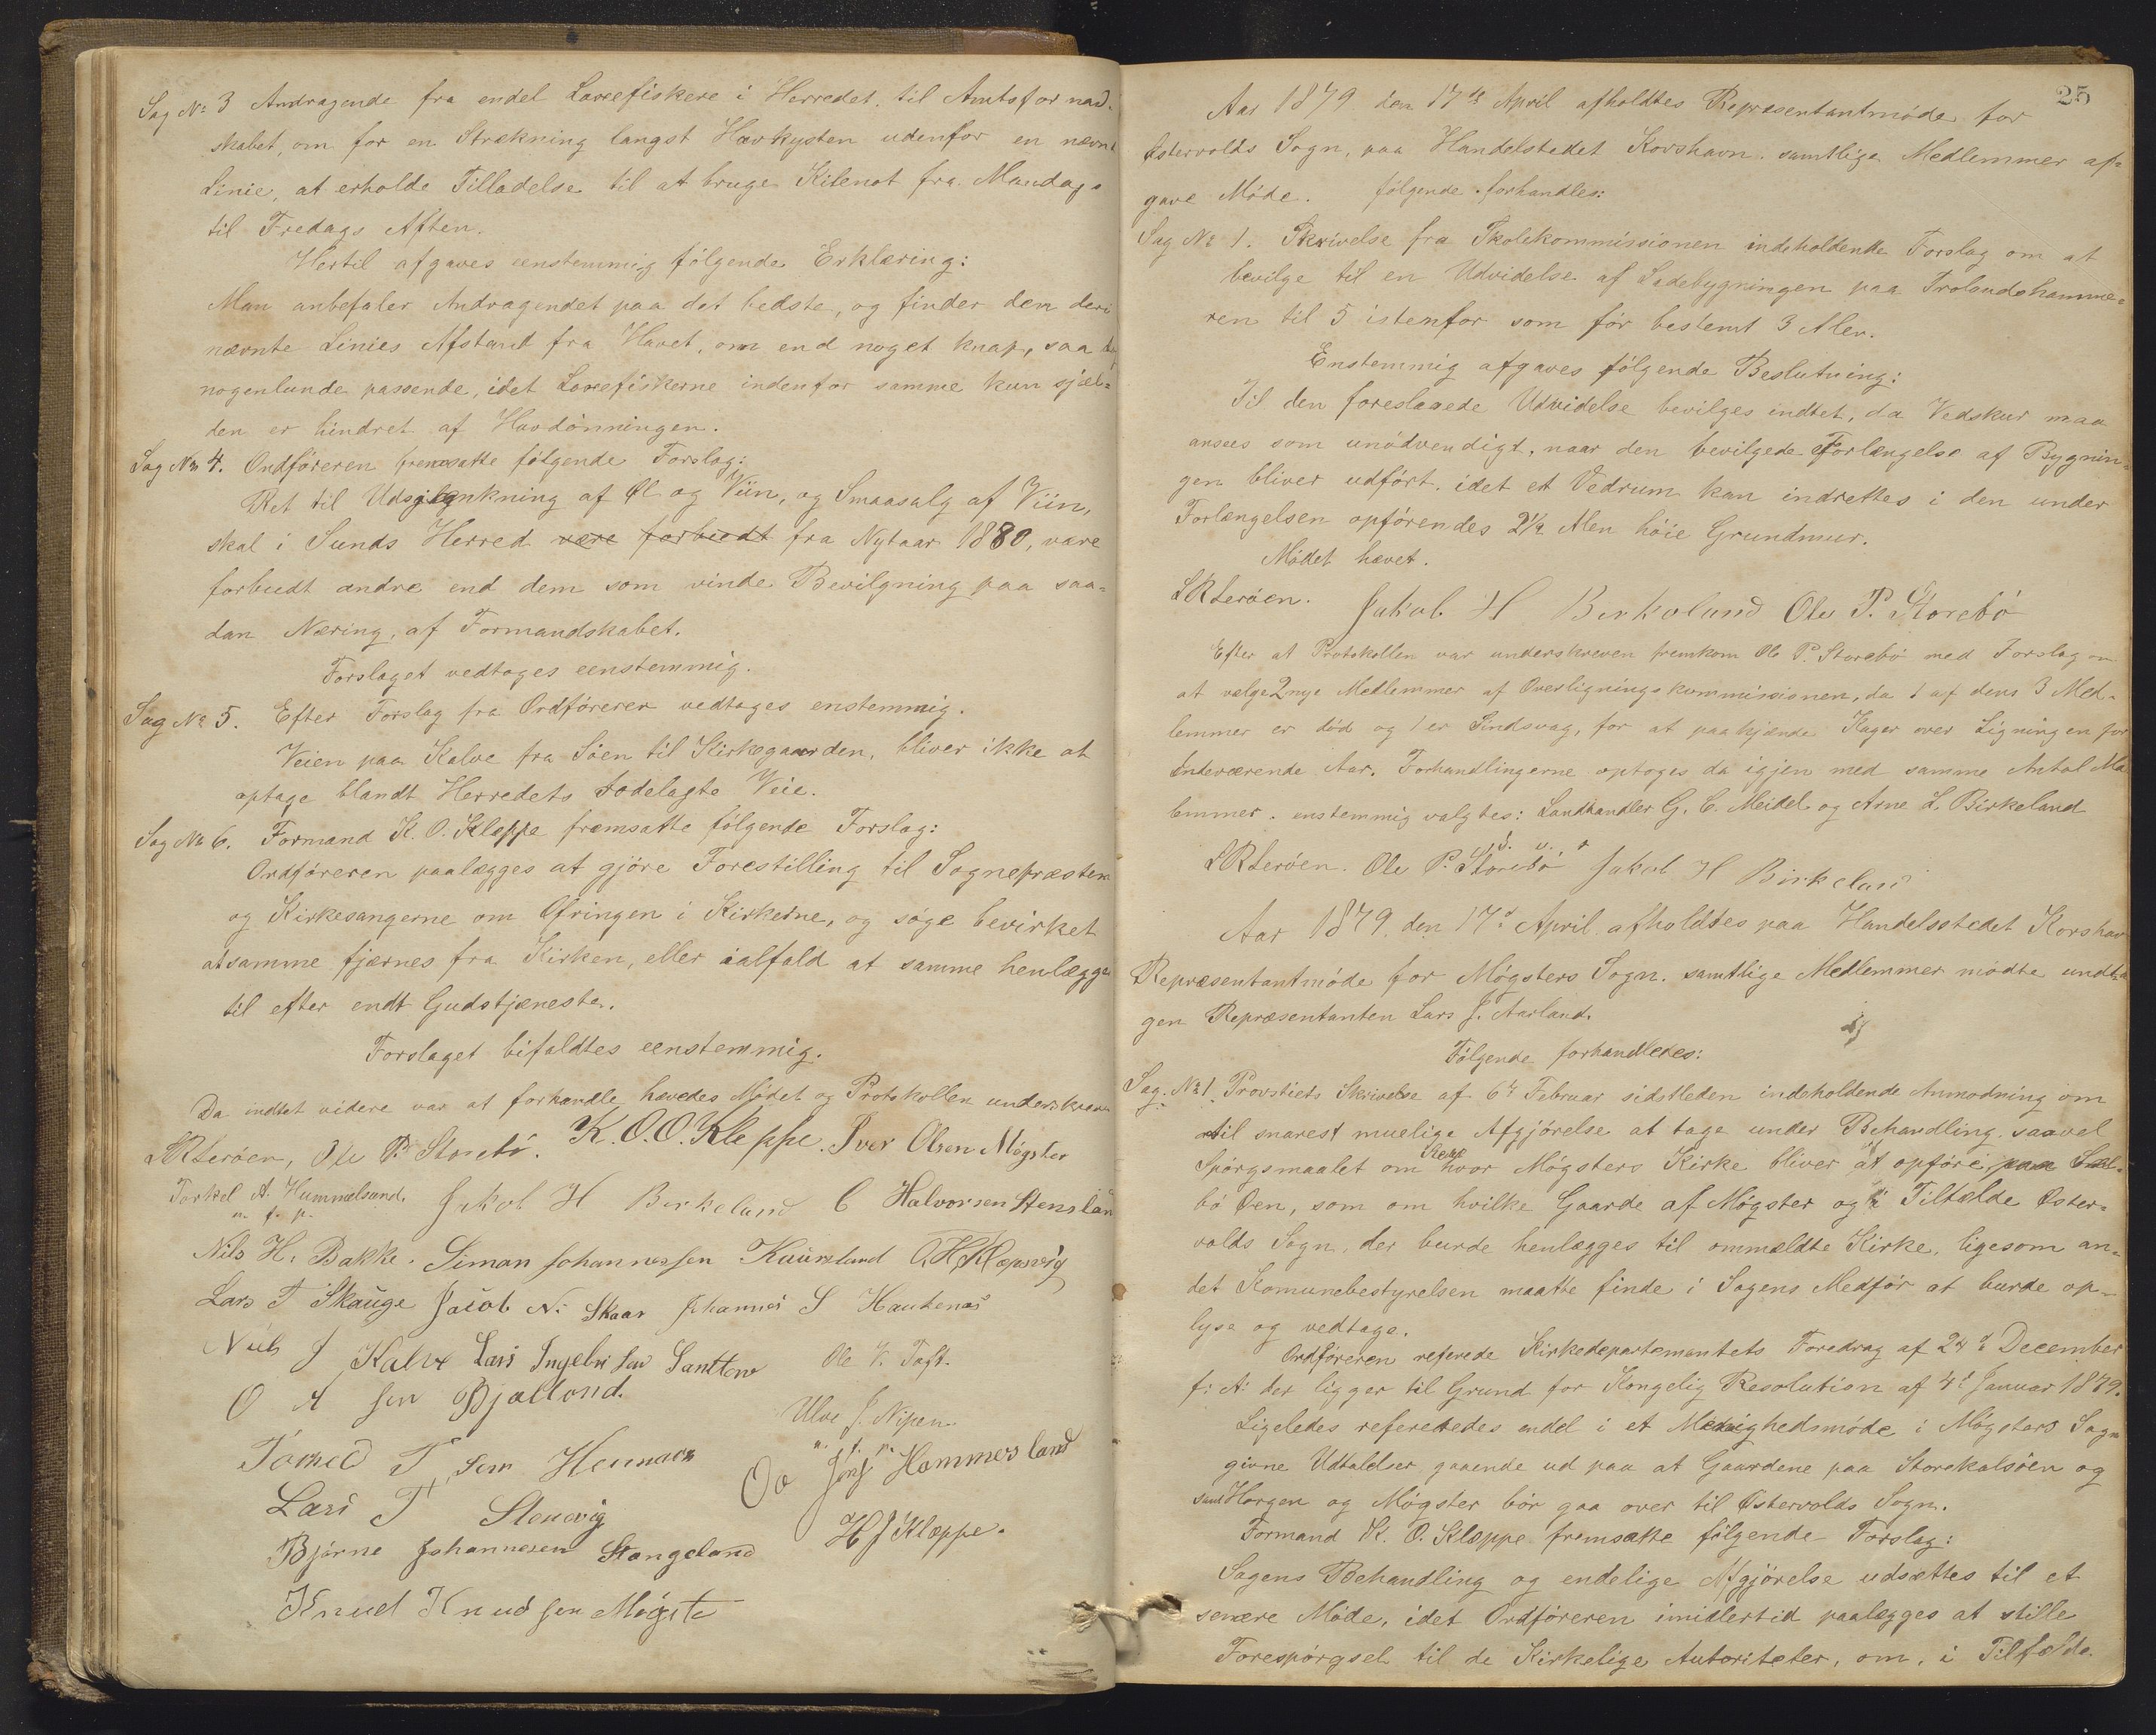 Sag No 3 Andragende fra endel Laxefiskere i Herredet til Amtsformand-
skabet, om for en Strækning langst Havkysten udenfor en nævnt
Linie, at erholde Tilladelse til at bruge Kilenot fra Mandags
til Fredags Aften.
Hertil afgaves eenstemmig følgende Erklæring:
Man anbefaler Andragendet paa det bedste, og finder den deri
nævnte Linies Afstand fra Havet, om end noget knap, saa dog
nogenlunde passende, idet Laxefiskerne indenfor samme kun sjæl-
den er hindret af Havdønningen.
Sag No 4. Ordføreren fremsatte følgende Forslag:
Ret til Udskjænkning af Øl og Viin, og Smaasalg af Viin,
skal i Sunds Herred være forbudt fra Nytaar 1880, være
forbudt andre end dem som vinde Bevilgning paa saa-
dan Næring, af Formandskabet.
Forslaget vedtoges eenstemmig.
Sag No 5. Efter Forslag fra Ordføreren vedtages enstemmig.
Veien paa Kalve fra Søen til Kirkegaarden, bliver ikke at
optage blandt Herredets rodelagte Veie.
Sag No 6. Formand K. O. Kleppe fremsatte følgende Forslag:
Ordføreren paalægges at gjøre Forestilling til Sognepræsten
og Kirkesangerne om Ofringen i Kirkerne, og søge bevirket
at samme fjærnes fra Kirken, eller ialfald at samme henlægges
til efter endt Gudstjæneste.
Forslaget bifaldtes eenstemmig.
Da indtet videre var at forhandle hævedes Mødet og Protokollen underskreven
L R Lerøen, Ole P. Storebø. K. O. O. Kleppe. Iver Olsen Møgster
Torkel A. Hummelsund. Jakob H Birkeland C Halvorsen Stensland
m. f. p.
Nils H. Bakke. Siman Johannessen Kausland O. H. Klepsvig
Lars T Skauge Jacob N. Skaar Johannes S Haukenæs
Niels J Kalve Lars Ingebrigtsen Ole V. Toft.
O A sen Bjælland.
Ulve J. Nipen.
m. f. p.
T sen Hennøen
Jonsen Hammersland
Lars T Steensvig
H J Kleppe.
Bjørne Johannesen Stangeland
Knud Knudsen Møgster
25
Aar 1879 den 17de April afholdtes Repræsentantmøde for
Østervolds Sogn, paa Handelstedet Korshavn. samtlige Medlemmer af-
gave Møde. følgende forhandles:
Sag No 1. Skrivelse fra Skolekommissionen indeholdende Forslag om at
bevilge til en Udvidelse af Ladebygningen paa Trolandshamme-
ren til 5 istenfor som før bestemt 3 Alen.
Enstemmig afgaves følgende Beslutning:
Til den foreslaaede Udvidelse bevilges indtet, da Vedskur maa
ansees som unødvendigt, naar den bevilgede Forlængelse af Bygnin-
gen bliver udført. idet et Vedrum kan indrettes i den under
Forlængelsen opførendes 2½ Alen høie Grundmur.
Mødet hævet.
L R Lerøen. Jakob H Birkeland Ole P. Storebø
Efter at Protokollen var underskreven fremkom Ole P. Storebø med Forslag om
at vælge 2 nye Medlemmer af Overligningskommissionen, da 1 af dens 3 Med-
lemmer er død og 1 er Sindsvag, for at paakjænde Klager over Ligningen for
Indeværende Aar. Forhandlingerne optoges da igjen med samme Antal Med-
lemmer. enstemmig valgtes: Landhandler G. C. Meidel og Arne L. Birkeland
L R Lerøen. Ole P. Storebø Jakob H Birkeland
Aar 1879. den 17d April afholdtes paa Handelsstedet Korshavn
Repræsentantmøde for Møgsters Sogn. samtlige Medlemmer mødte undta-
gen Repræsentanten Lars J. Aarland.
Følgende forhandledes:
Sag. No 1. Provstiets Skrivelse af 6te Februar sidstleden indeholdende Anmodning om
til snarest muelige Afgjørelse at tage under Behandling saavel
Spørgsmaalet om hvor Møgsters Kirke bliver at opføre paa Sel-
bø Øen, som om hvilke Gaarde af Møgster og i Tilfælde Øster-
volds Sogn, der burde henlægges til ommældte Kirke, ligesom an-
det Komunebestyrelsen maatte finde i Sagens Medfør at burde op-
lyse og vedtage.
Ordføreren referede Kirkedepartementets Foredrag af 24d December
f: A: der ligger til Grund for Kongelig Resolution af 4d Januar 1879.
Ligeledes refereredes endel i et Menighedsmøde i Møgsters Sogn
givne Udtalelser gaaende ud paa at Gaardene paa Storekalsøen og
samt Horgen og Møgster bør gaa over til Østervolds Sogn.
Formand K. O. Kleppe fremsatte følgende Forslag:
Sagens Behandling og endelige Afgjørelse udsættes til et
senere Møde, idet Ordføreren imidlertid paalægges at stille
Forespørgsel til de Kirkelige Autoriteter, om, i Tilfælde